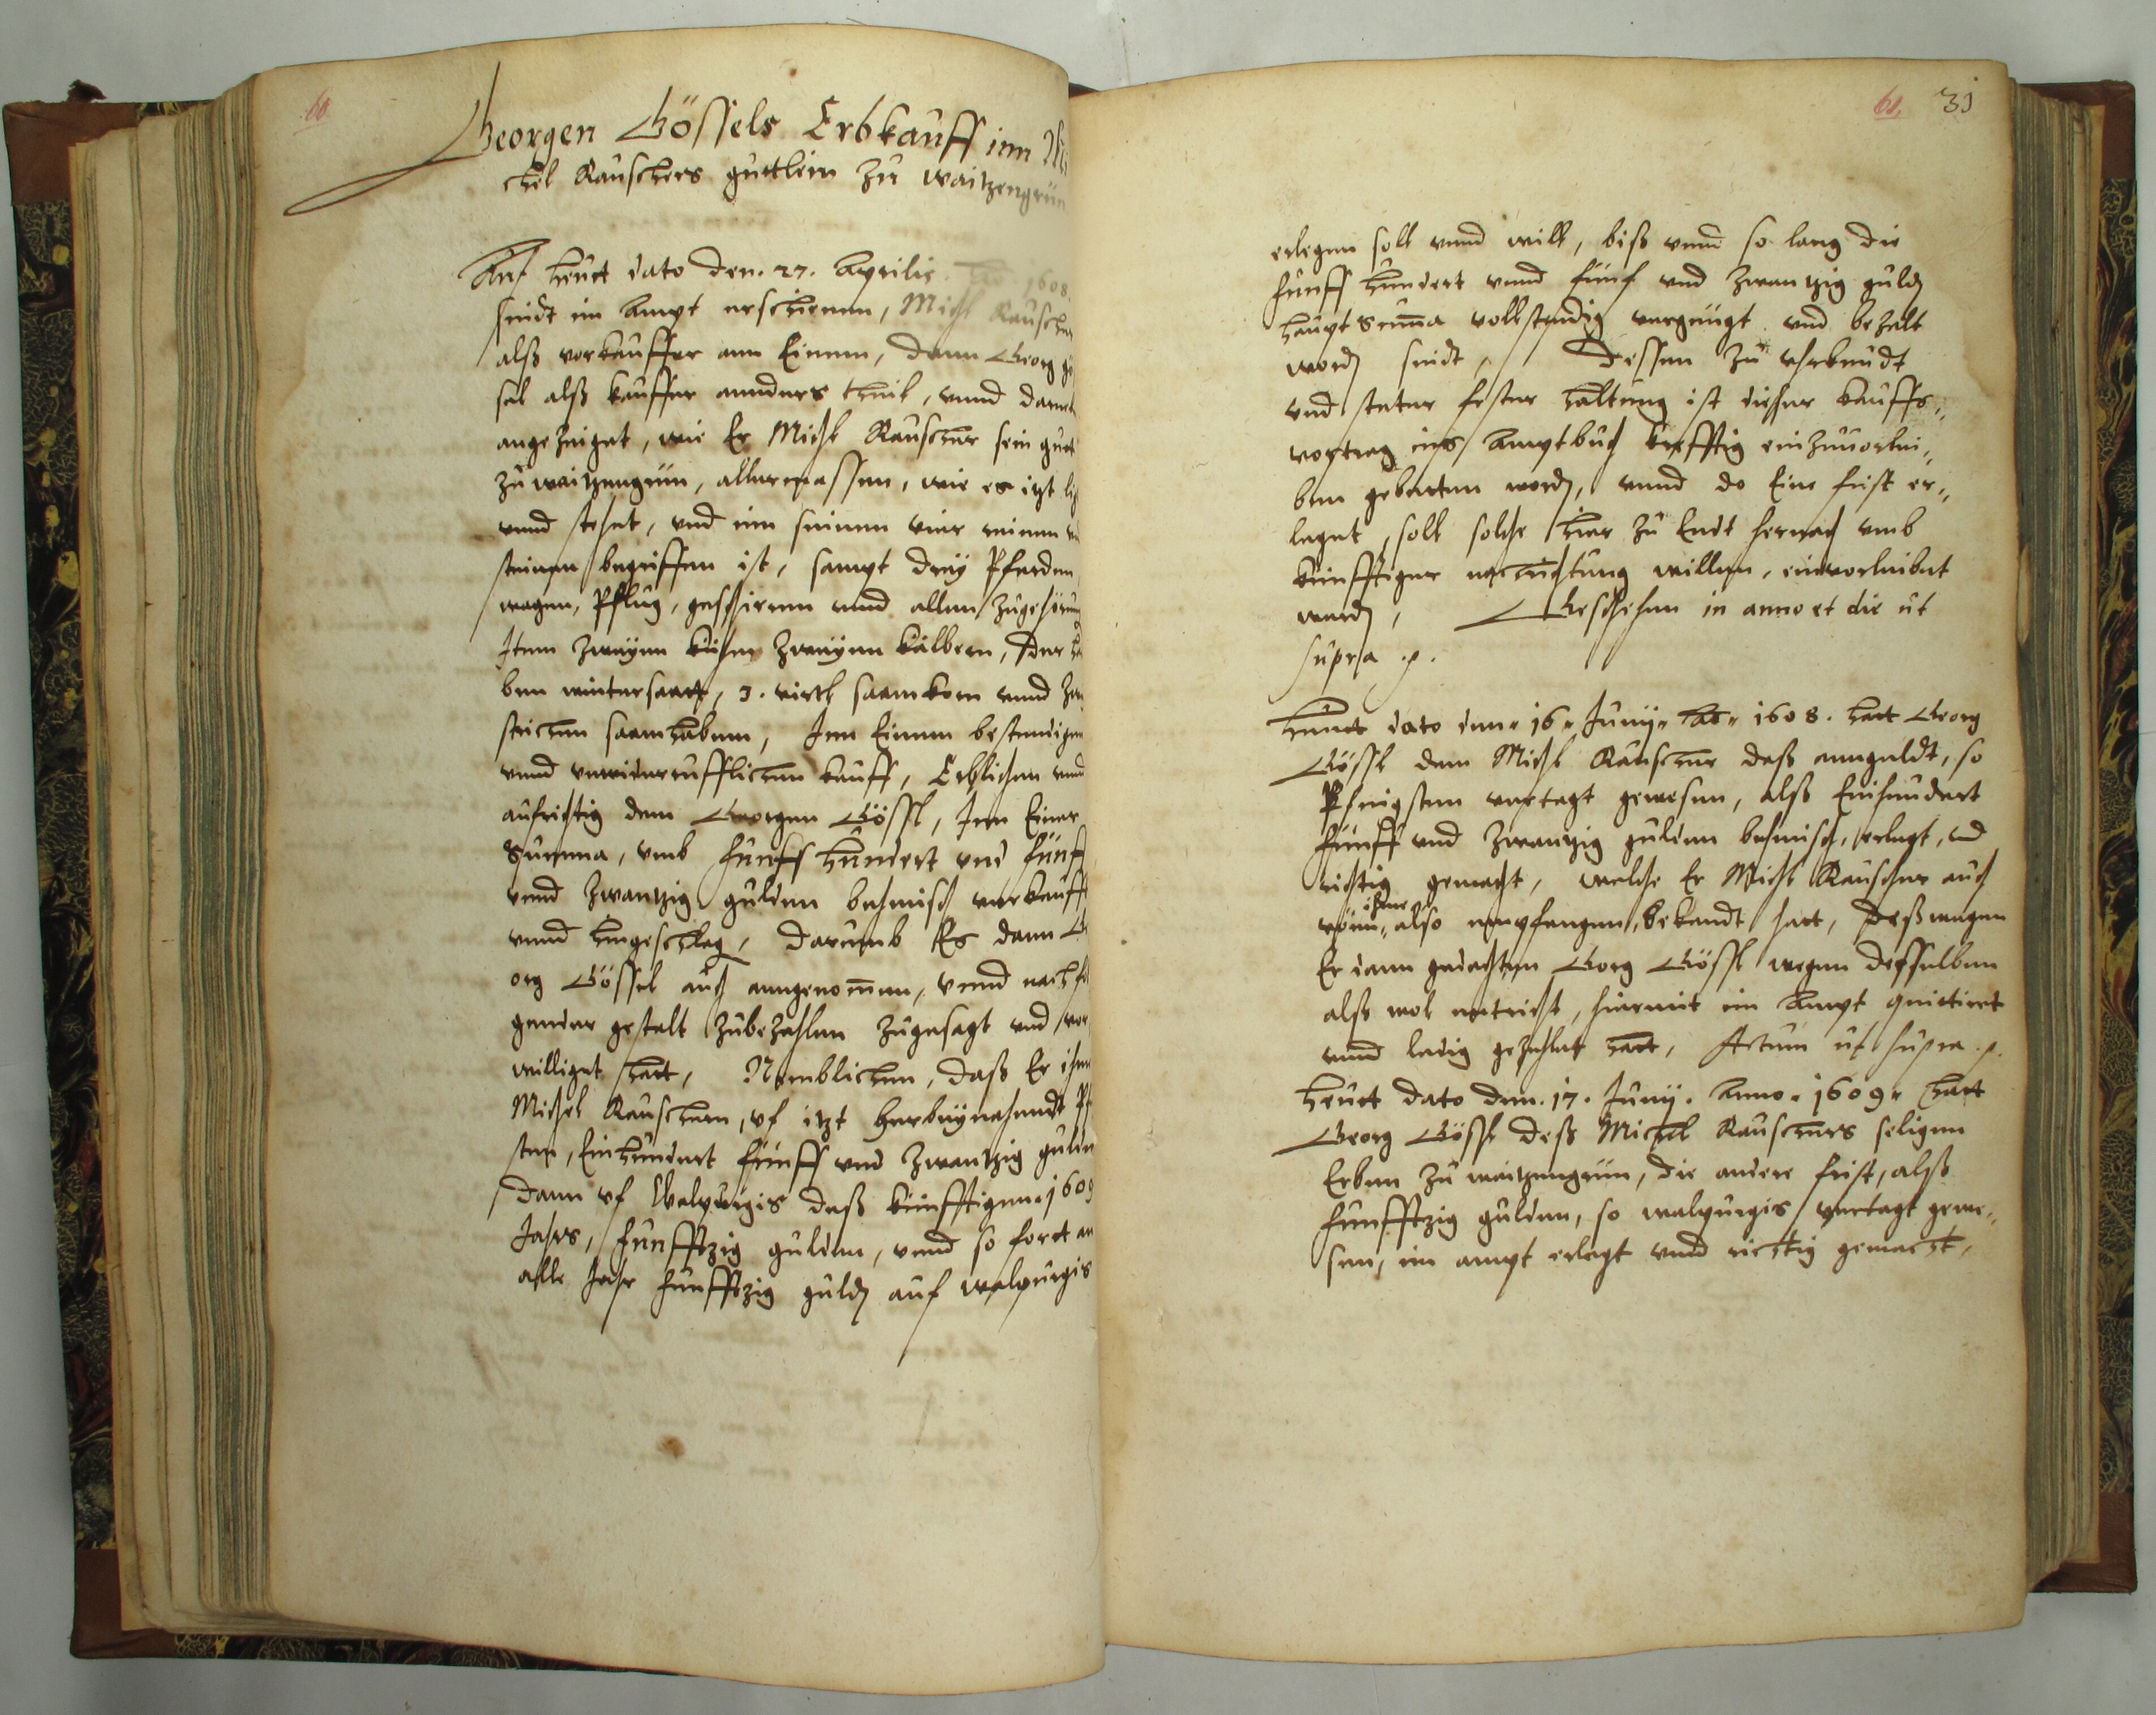 60
Georgen Gössels Erbkauff inn Mi
chel Rauschers guttlein zu Waitzengrün
Auf heutt dato den. 27. Aprilis. Ao. 1608.
sindt im Ampt erschienen, Michl Rauscher
alß verkauffer ann Einem, dann Georg Gö
sel alß kauffer annders theils, vnnd
angezeiget, wie Er Michl Rauscher sein gutt
zu waitzengrün, allermassen, wie es itzt lig
vnnd stehet, vnd inn seinen vier reinen vn
steinen begriffen ist, sampt drey Pferden
wagen, Pflug, geschirren vnnd allen zugehörung
Item zweyen kühen zweyen kälbern, der hal
ben wintersaatt, 3. virtl saamkorn vnnd zwe
strichen saamhabern, Inn Einem bestendigen
vnnd vnwiederrufflichen kauff, Erblichen vnnd
aufrichtig dem Georgen Gössl, Inn Einer
Summa, vmb fünff hundert vnd fünff
vnnd zwantzig gulden behmisch verkaufft
vnnd hingeschlag, darumb Es dann Ge
org Gössel auch anngenommen, vnnd nachfol
gender gestalt zubezahlen zugesagt vnd ver
williget hatt, Nemblichen, daß Er ihm
Michel Rauschern, vf itzt herbeynahendt Pf
sten, Einhundert fünff vnd zwantzig gulden
dann vf Walpurgis deß künfftigenn 1609
Jahrs, fünfftzig gulden, vnnd so fortt an
alle Jahr fünfftzig guld auf walpurgis
61. 31
erlegen soll vnnd will, biß vnnd so lang die
fünff hundert vnnd fünf vnd zwantzig guld
hauptsumma vollstendig vergnügt vnd bezalt
word sindt, Dessen zu vhrkundt
vnd steter fester haltung ist dieser kauffs„
vertrag ins Amptbuch krefftig einzuuorlei„
ben gebetten word, vnnd do Eine frist er„
leget, soll solche hier zu Endt hernach vmb
künfftiger nachrichtung willen, einvorleibet
werd, Geschehen in anno et die ut
supra .p.
Heutt dato den„ 16„ Junij„ Ao„ 1608. hatt Georg
Gössl dem Michl Rauscher daß anngeldt, so
Pfingsten vertagt gewesen, alß Einhundert
fünff vnd zwantzig gulden behmisch, erlegt, vnd
richtig gemacht, welche Er Michl Rauscher auch
von„ ihme also empfangen, bekandt hatt, deßwegen
Er dann gedachten Georg Gössl wegen desselben
alß wol entricht, hiermit im Ampt quittiert
vnnd ledig gezehlet hatt, Actum ut supra .p.
Heutt dato den. 17. Junij. Anno„ 1609„ hatt
Georg Gössl deß Michel Rauschers seligen
Erben zu waitzengrün, die andere frist, alß
fünfftzig gulden, so walpurgis vertagt gewe„
sen, im ampt erlegt vnnd richtig gemacht,